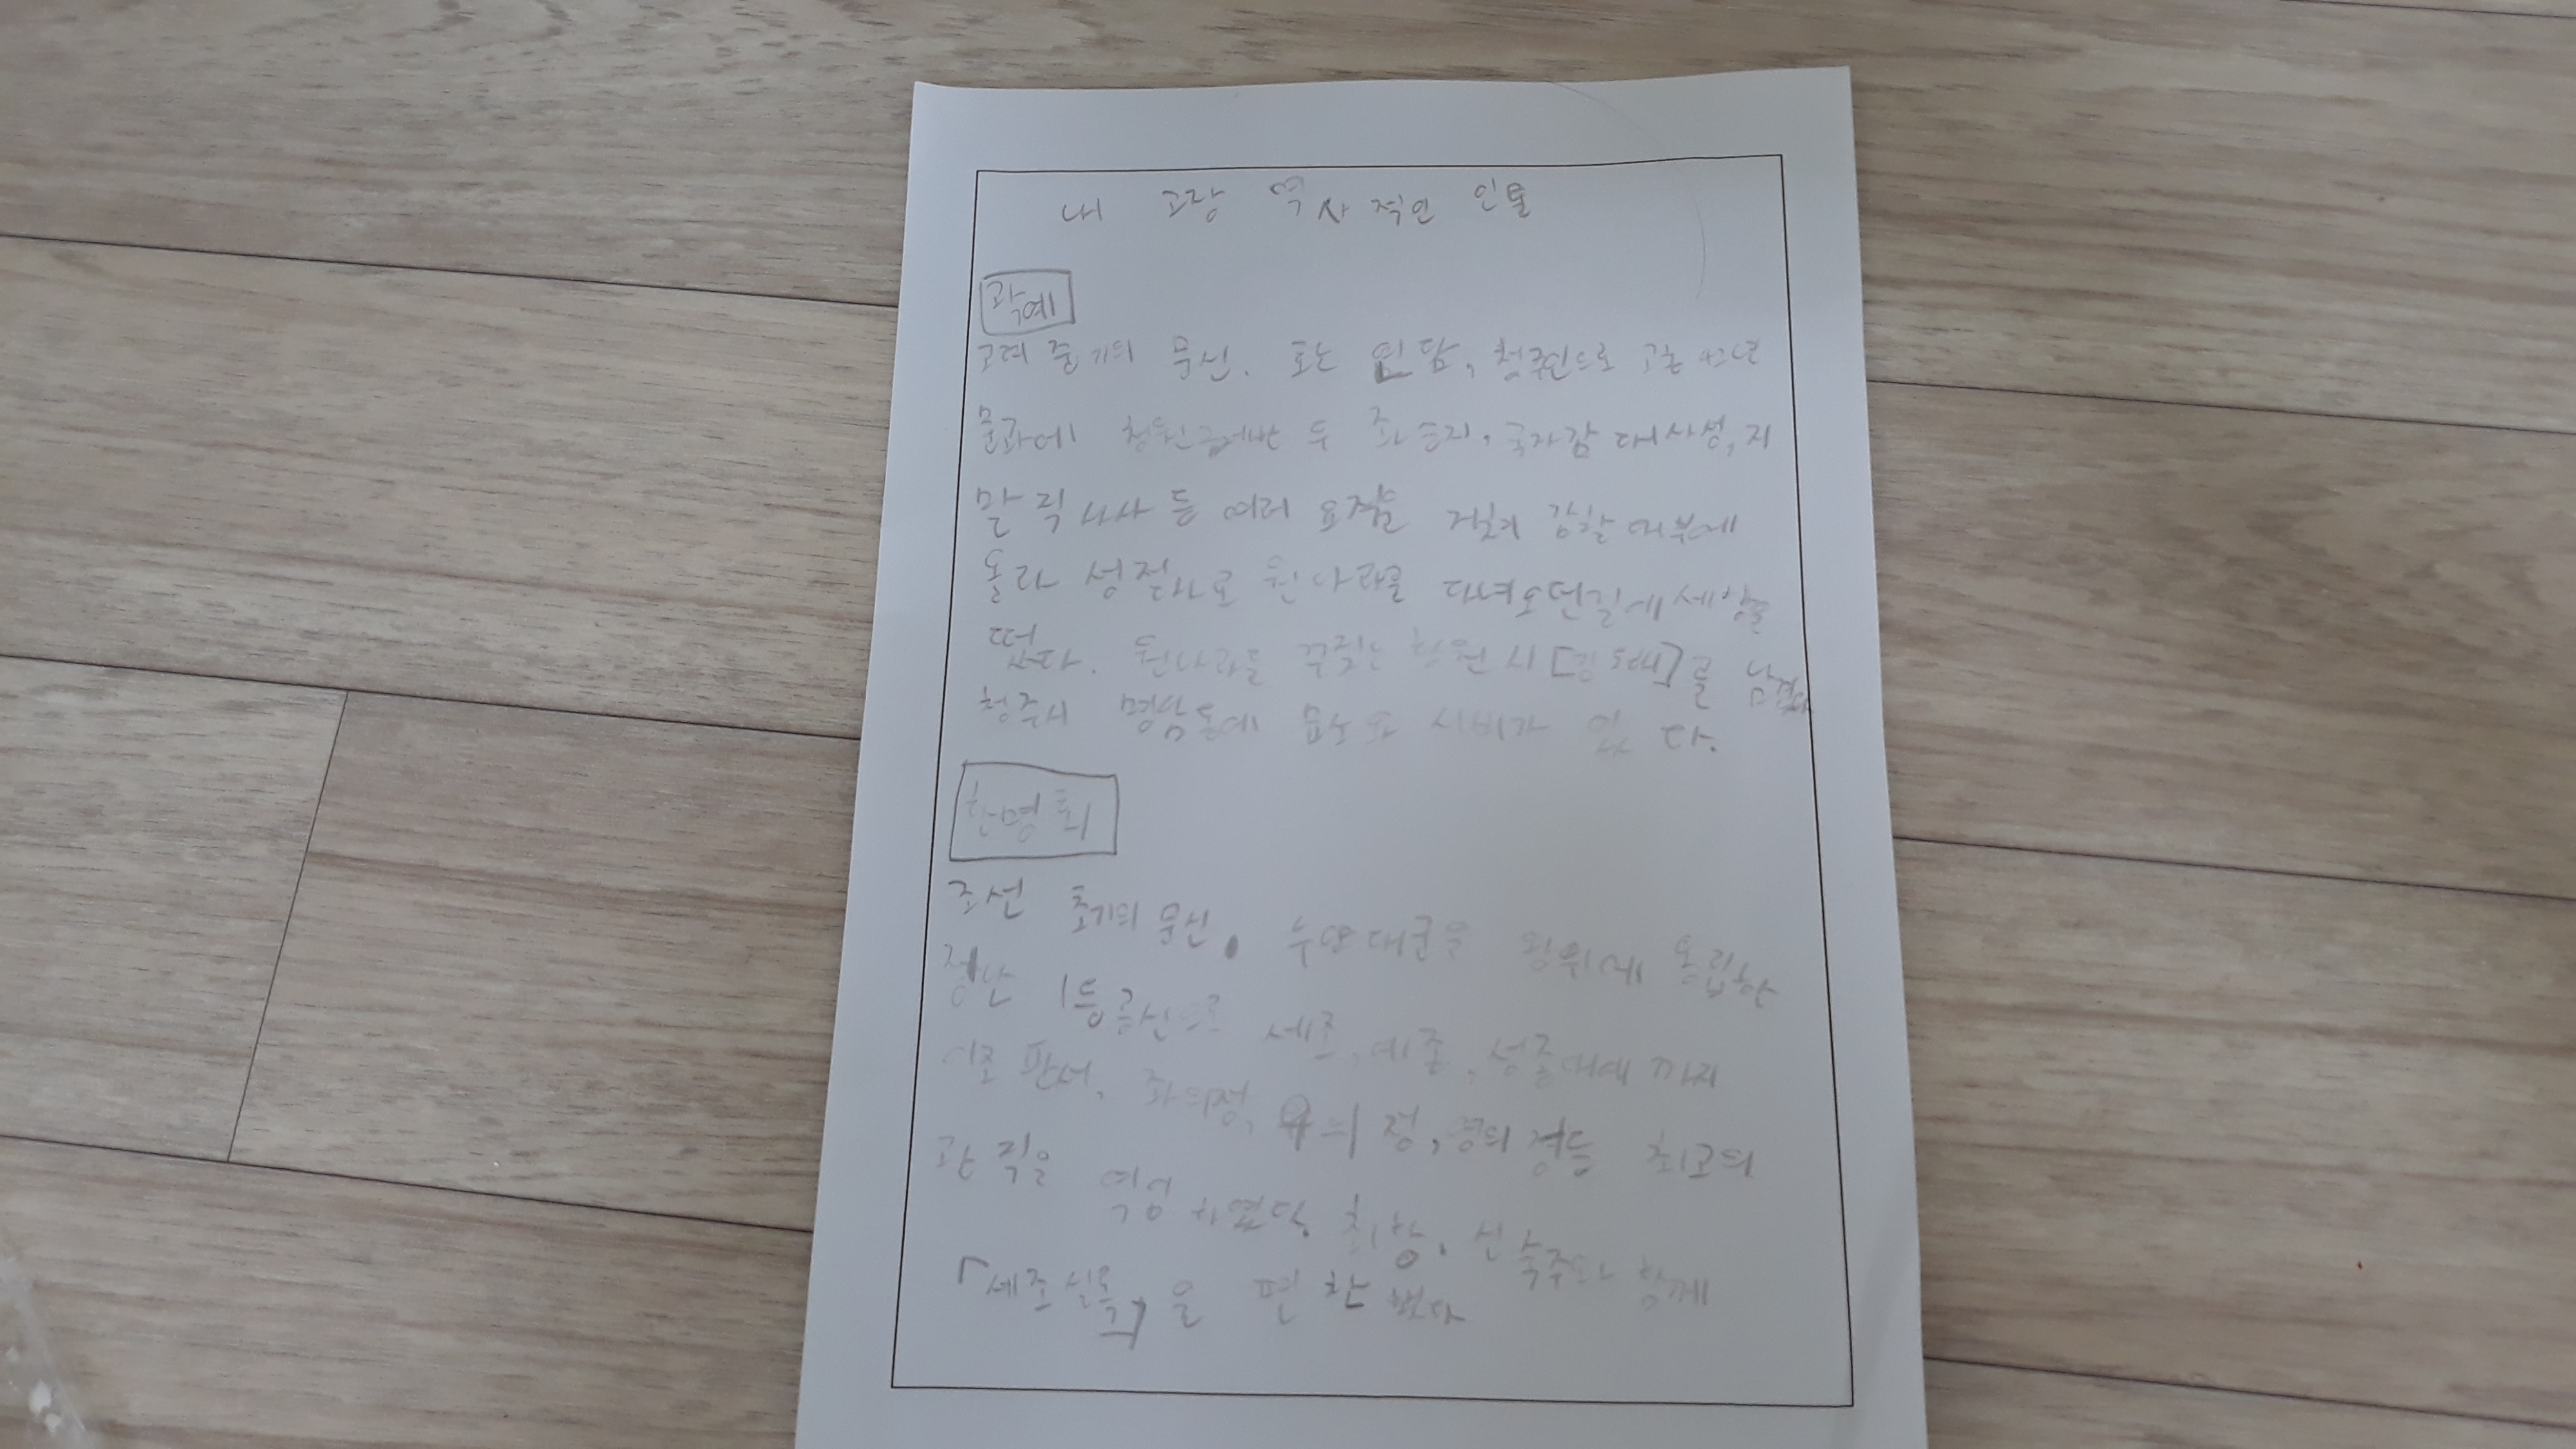 내 고장 역사적인 인물
곽예
고려 중기의 문신. 호는 연담, 청주인으로 고종 42년
문과에 장원급제한 후 좌승지, 국자감 대사성, 지
말직사사 등 여러 요직을 거쳐 감찰대부에
올라 성절사로 원나라를 다녀오던길에 세상을
떴다. 원나라를 꾸짖는 한원시 를 남겼다
청주시 명암동에 묘소와 시비가 있다.
한명회
조선 초기의 문신. 수양대군을 왕위에 동립한
정난 1등공신으로 세조, 예종, 성종대에 까지
이조 판서, 좌의정, 우의정, 영의정등 최고의
관직을 역임 하였다. 최항, 신숙주와 함께
「세조실록」을 편찬 했다